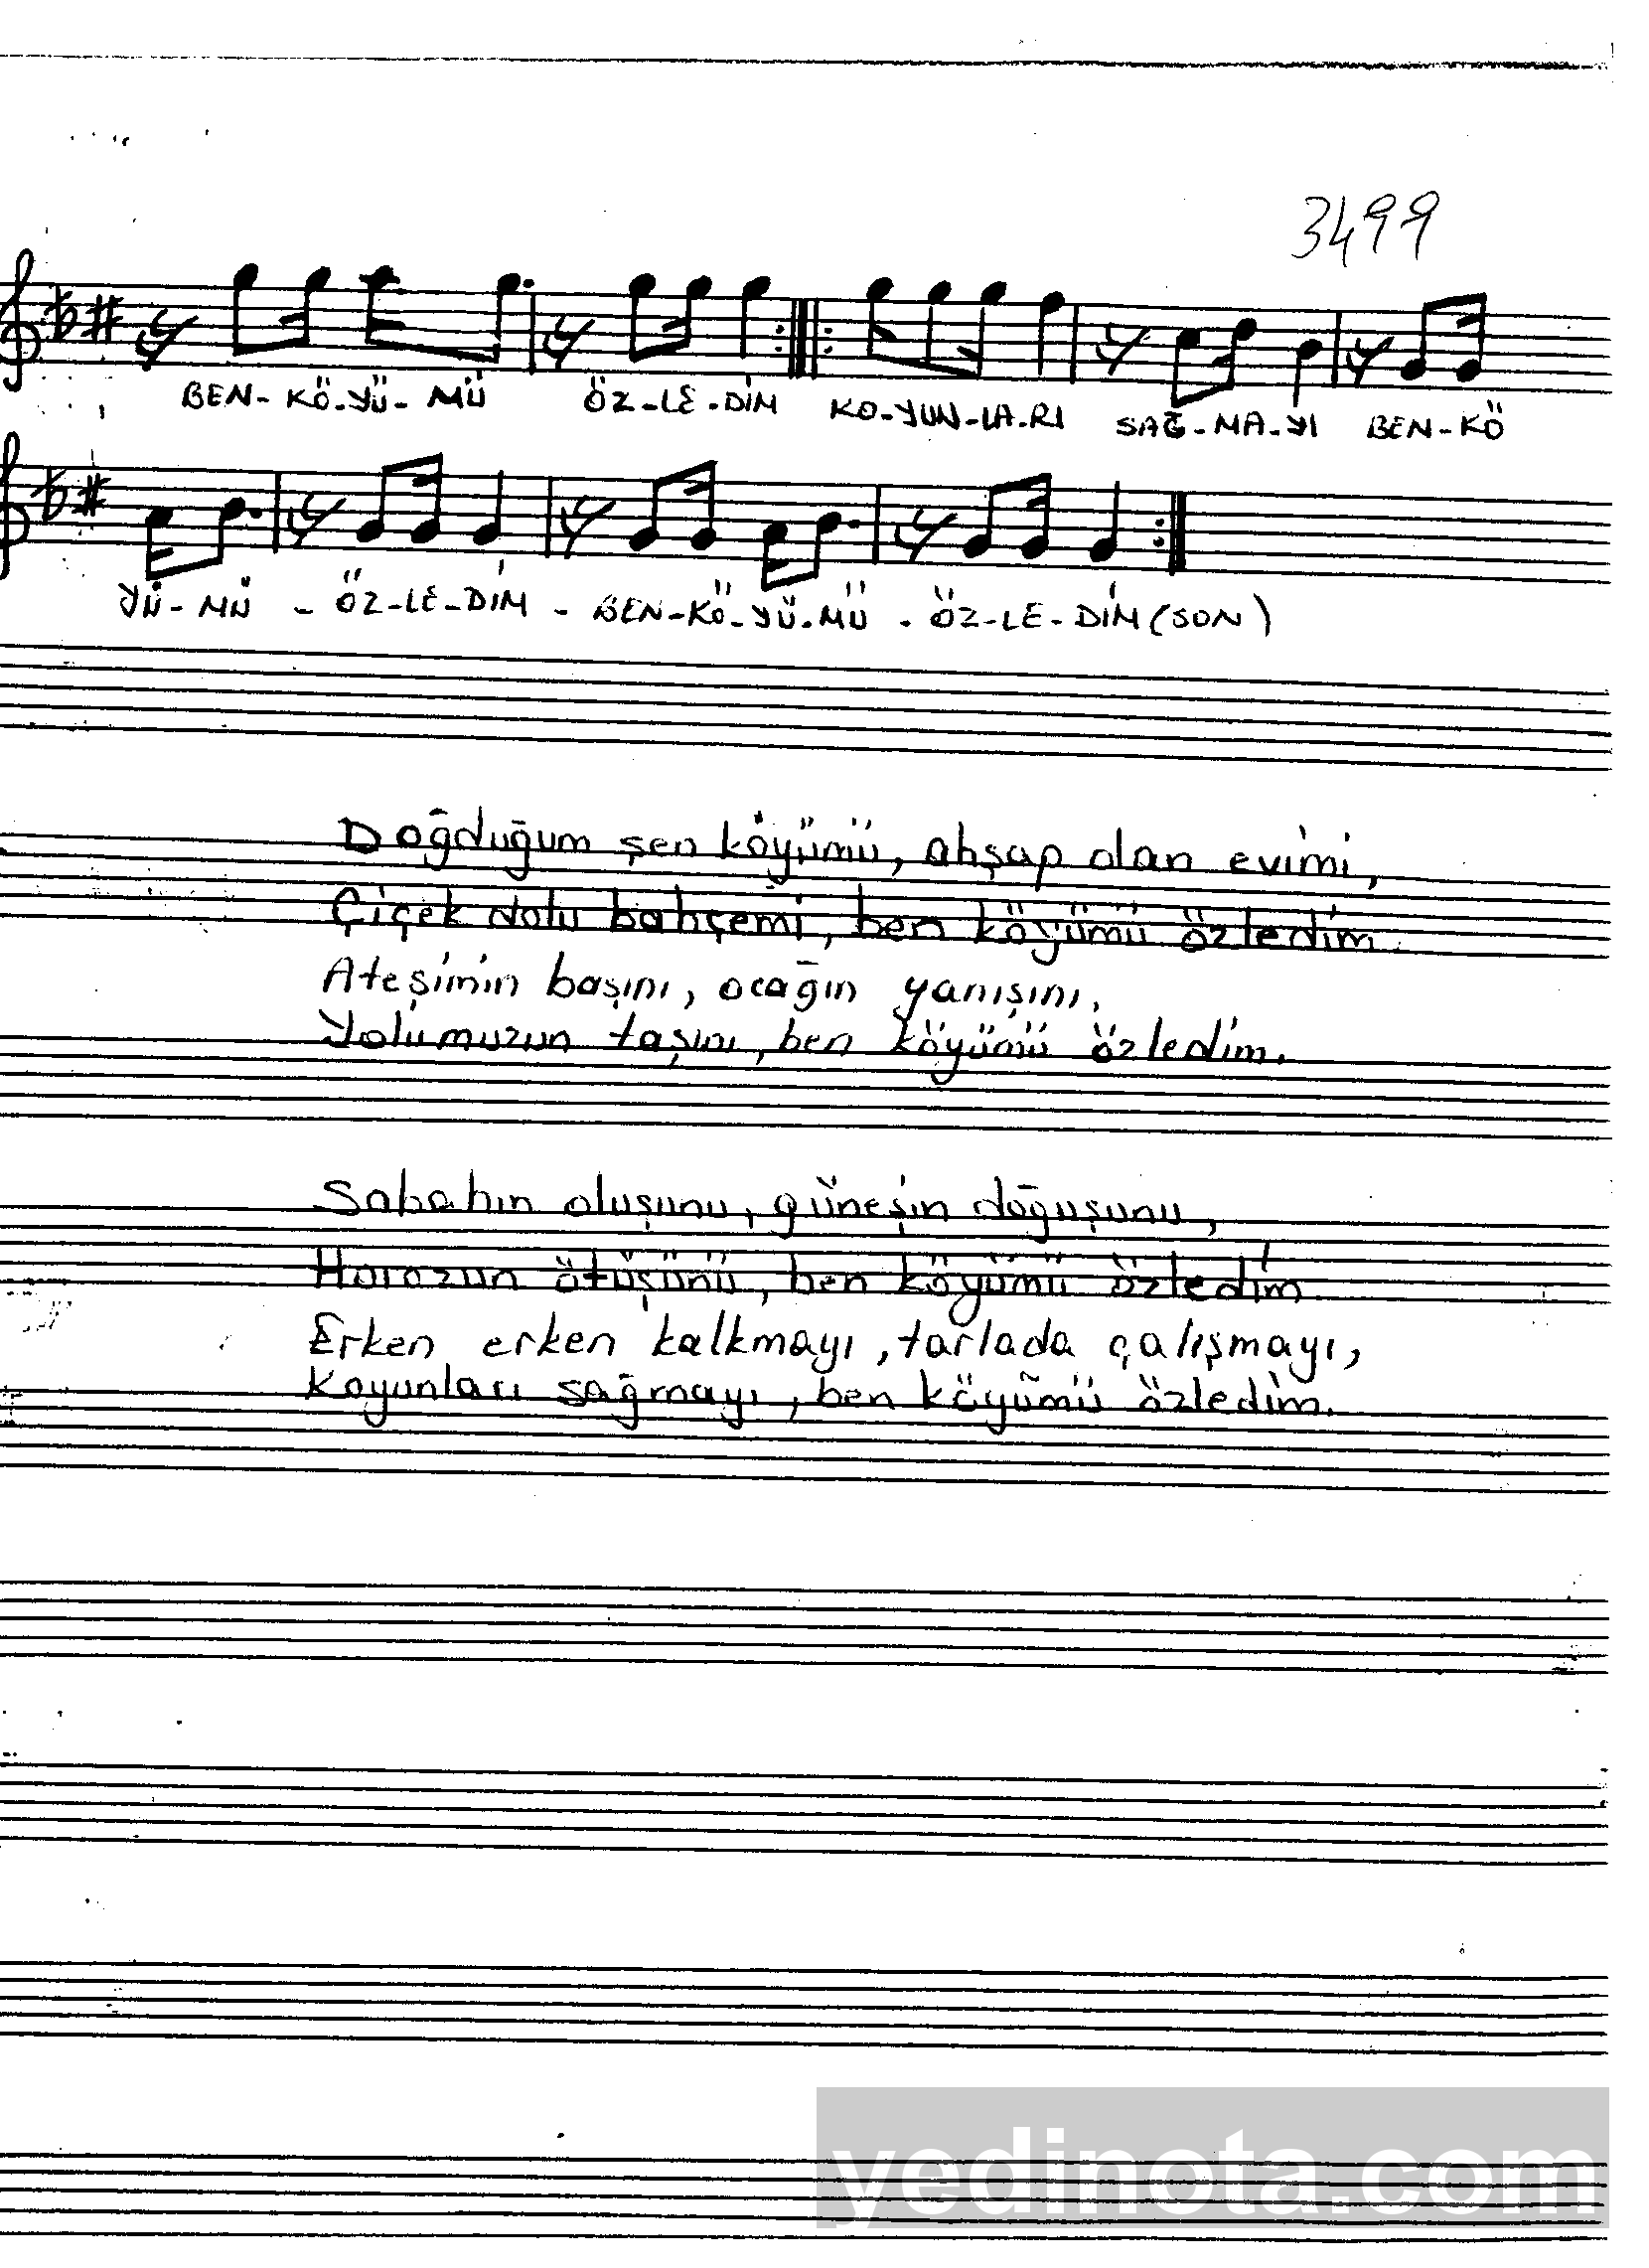 3499
BEN-KÖ-YÜ-MÜ ÖZ-LE-DİM KO-YUN-LA-RI SAĞ-MA-YI BEN-KÖ
YÜ-MÜ - ÖZ-LE-DİM - BEN-KÖ-YÜ-MÜ - ÖZ-LE-DİM (SON)
Doğduğum şen köyümü, ahşap olan evimi,
Çiçek dolu bahçemi, ben köyümü özledim.
Ateşimin başını, ocağın yanışını,
Yolumuzun taşını, ben köyümü özledim.
Sabahın oluşunu, güneşin doğuşunu,
Horozun ötüşünü, ben köyümü özledim
Erken erken kalkmayı, tarlada çalışmayı,
Koyunları sağmayı, ben köyümü özledim.
yedinota.com